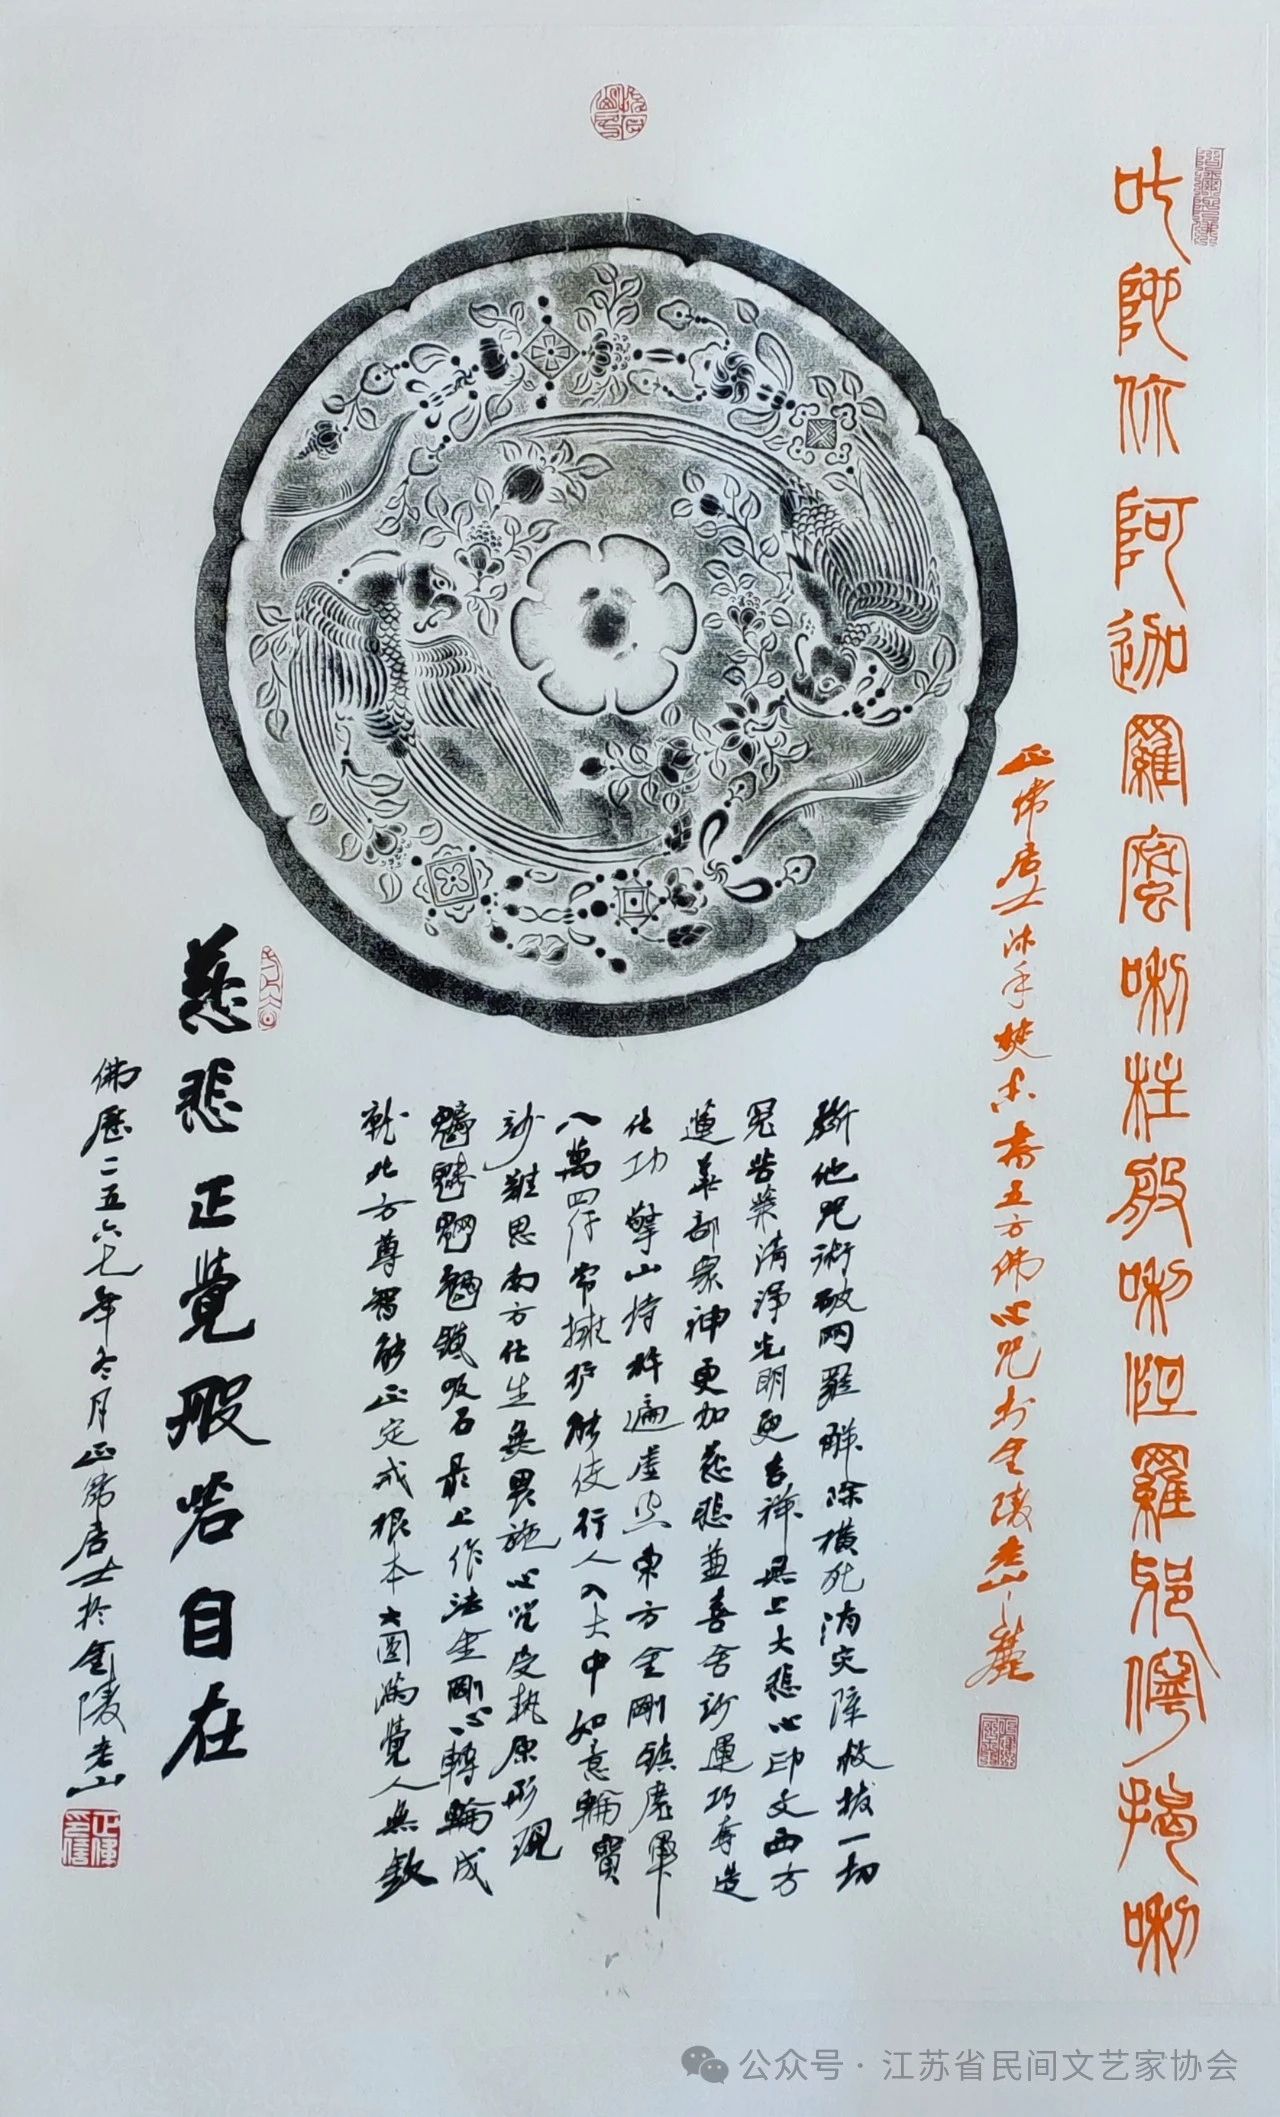 叱哆你阿迦羅密唎柱般唎涅羅那得揭唎
正佛居士沐手焚香書五方佛心咒於金陵老山之麓
斷他咒術破網羅解除橫死消灾障救拔一切
冤苦業清淨光明更吉祥無上大悲心印文西方
蓮華部眾神更加慈悲並喜舍妙運巧奪造
化功擎山持杵遍虛空東方金剛鎮魔軍
八萬四仟常擁护能使行人入大中如意輪寶
妙難思南方化生無畏施心咒受執原形現
魑魅魍魎鐵吸石最上作法金剛心轉輪成
就北方尊智能正定戒根本大圓滿覺人無數
慈悲正覺般若自在
佛歷二五六七年冬月正佛居士於金陵老山
公众号 · 江苏省民间文艺家协会